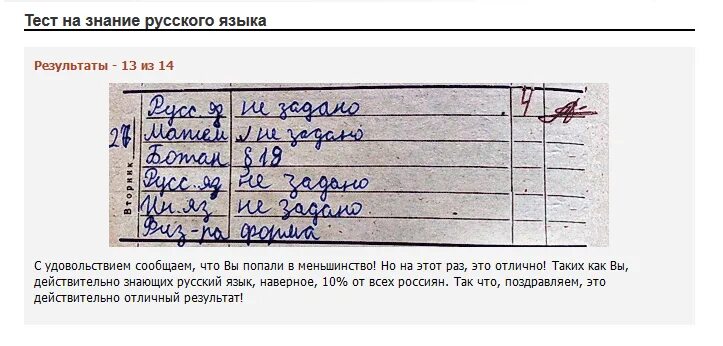 Тест на знание русского языка
Результаты - 13 из 14
Русс. яз не задано 4
Матем не задано
Ботан § 19
Русс. яз не задано
Ин. яз не задано
Физ-ра форма
27
Вторник
С удовольствием сообщаем, что Вы попали в меньшинство! Но на этот раз, это отлично! Таких как Вы,
действительно знающих русский язык, наверное, 10% от всех россиян. Так что, поздравляем, это
действительно отличный результат!